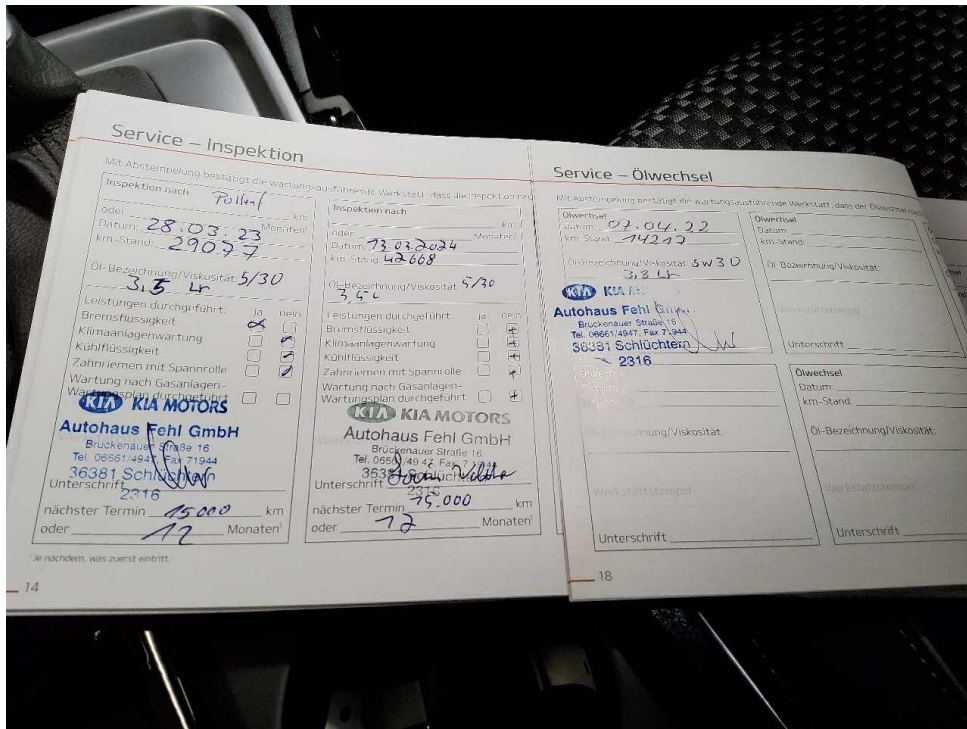 Service – Inspektion
Mit Abstempelung bestätigt die wartungsausführende Werkstatt, dass die Inspektion
Inspektion nach Pollenf
km
oder Monaten¹
Datum: 28.03.23
km-Stand: 29077
Öl-Bezeichnung/Viskosität 5/30
3,5 Lr
Leistungen durchgeführt: ja nein
Bremsflüssigkeit
Klimaanlagenwartung
Kühlflüssigkeit
Zahnriemen mit Spannrolle
Wartung nach Gasanlagen-
Wartungsplan durchgeführt
KIA KIA MOTORS
Autohaus Fehl GmbH
Brückenauer Straße 16
Tel. 06661/4947, Fax 71944
36381 Schlüchtern
Unterschrift
2316
nächster Termin 15000 km
oder 12 Monaten¹
¹Je nachdem, was zuerst eintritt.
14
Inspektion nach
km
oder Monaten¹
Datum 13.03.2024
km-Stand 42668
Öl-Bezeichnung/Viskosität 5/30
Leistungen durchgeführt ja nein
Bremsflüssigkeit
Klimaanlagenwartung
Kühlflüssigkeit
Zahnriemen mit Spannrolle
Wartung nach Gasanlagen-
Wartungsplan durchgeführt
KIA KIA MOTORS
Autohaus Fehl GmbH
Brückenauer Straße 16
Tel. 06661/4947, Fax 71944
36381 Schlüchtern
Unterschrift
2316
nächster Termin 15.000 km
oder 12 Monaten¹
Service – Ölwechsel
Mit Abstempelung bestätigt die wartungsausführende Werkstatt, dass der Ölwechsel nach
Ölwechsel
Datum: 07.04.22
km-Stand 14217
Öl-Bezeichnung/Viskosität 5W30
3,8 Lr
KIA KIA
Autohaus Fehl
Brückenauer Straße 16
Tel. 06661/4947, Fax 71944
36381 Schlüchtern
2316
Ölwechsel
Datum:
km-Stand:
Öl-Bezeichnung/Viskosität:
Werkstattstempel
Unterschrift
Ölwechsel
Datum:
Öl-Bezeichnung/Viskosität:
Werkstattstempel
Unterschrift
Ölwechsel
Datum:
km-Stand:
Öl-Bezeichnung/Viskosität:
Werkstattstempel
Unterschrift
18